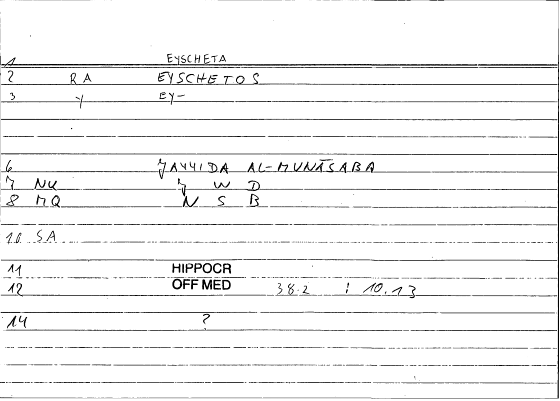 1 EYSCHETA
2 RA EYSCHETOS
3 Y EY-
6 ǦAYYIDA AL-MUNĀSABA
7 NU Ǧ W D
8 MQ N S B
10 SA
11 HIPPOCR
12 OFF MED 38.2 : 10.13
14 ?